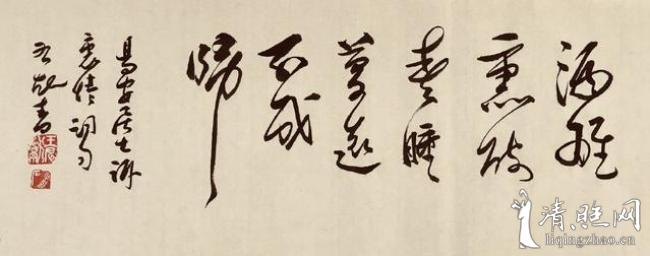 酒醒
熏破
春睡
夢遠
不成
歸
易安居士訴
衷情詞句
書
清照网
liqingzhao.cn